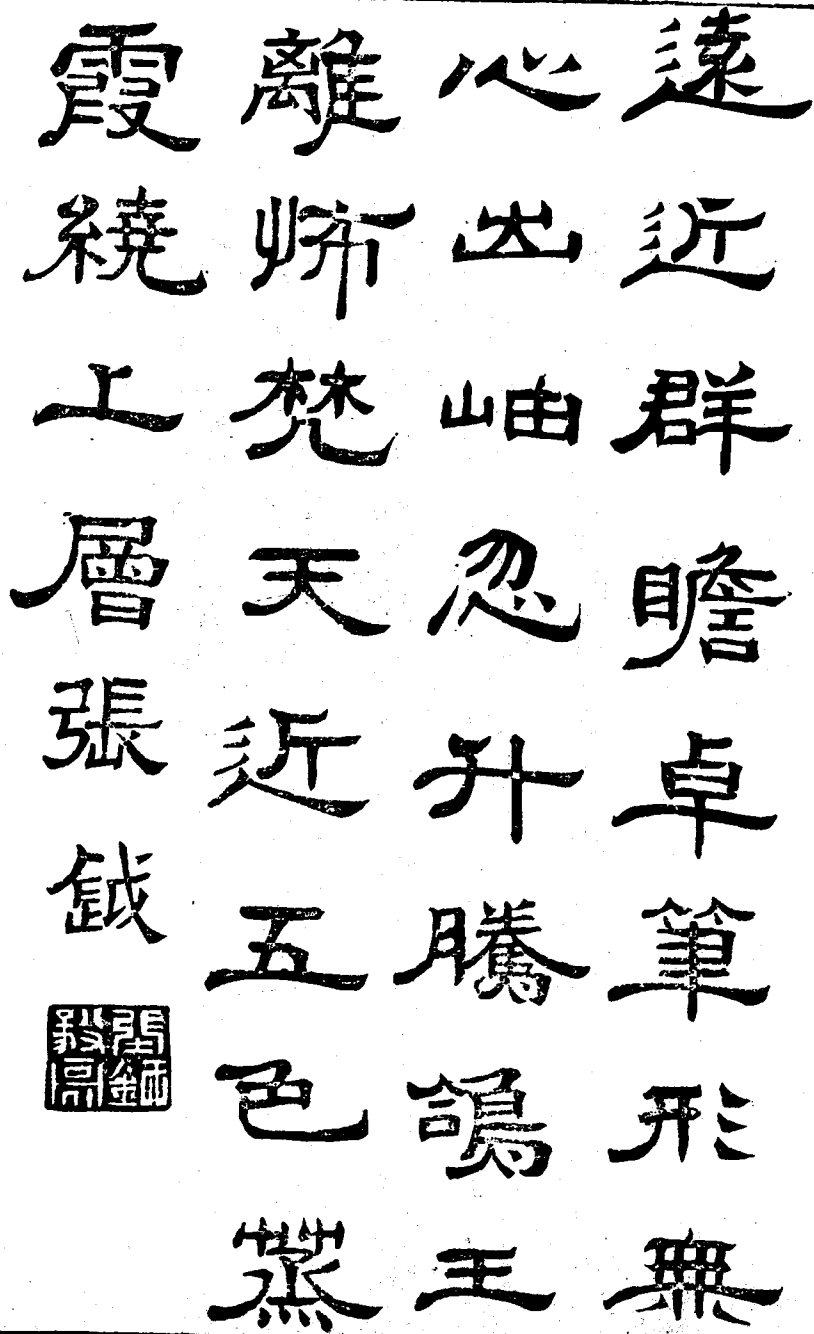 遠近群瞻卓筆形無
心出岫忽升騰鴿王
離怖梵天近五色蒸
霞繞上層張鉞
張鉞
毅亭